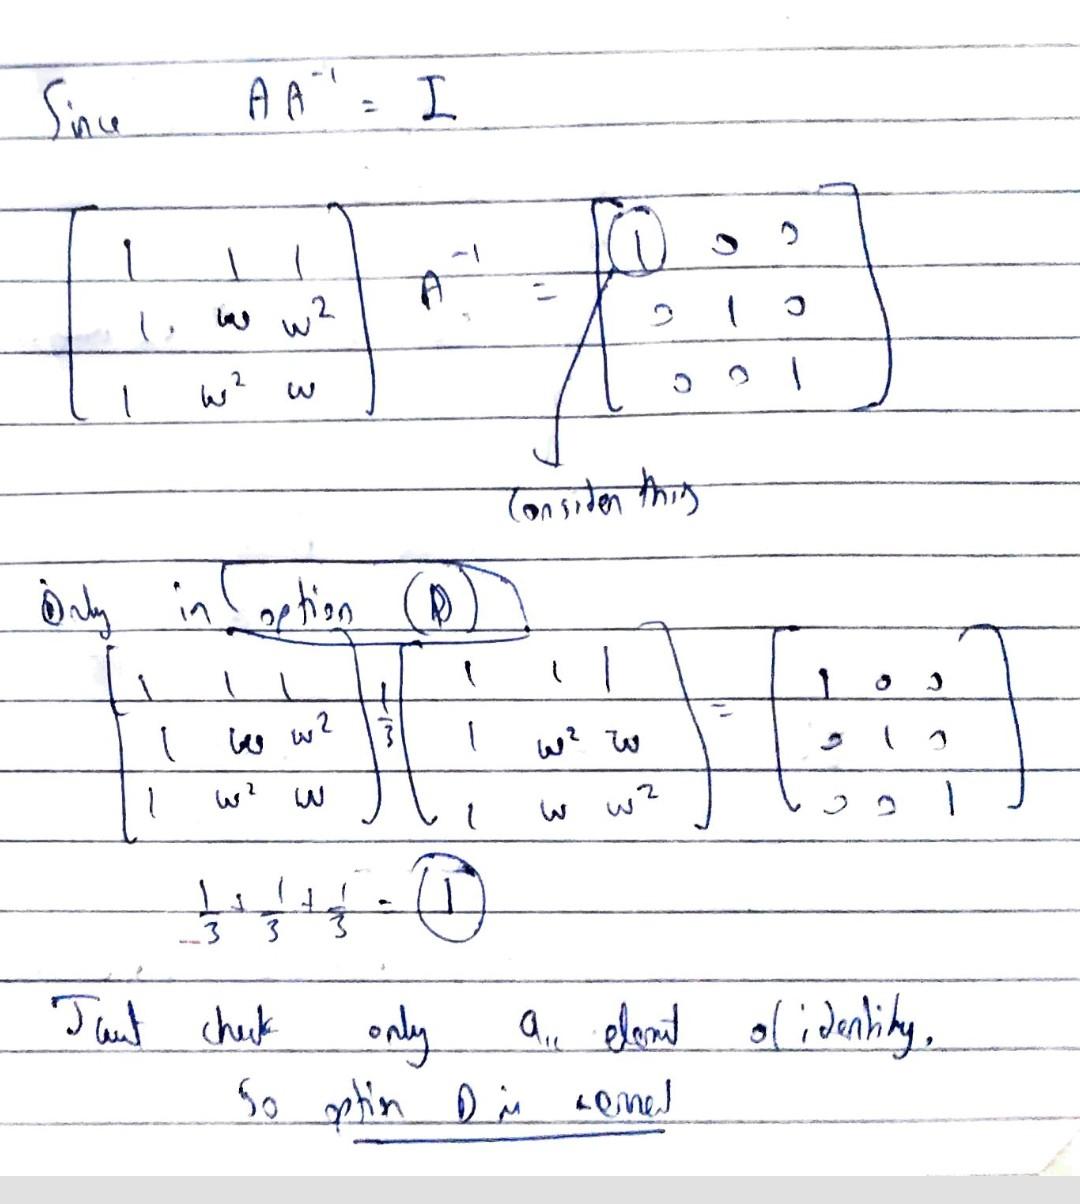 Since AA⁻¹ = I
1 1 1
1 w w²
1 w² w
A⁻¹ =
1 0 0
0 1 0
0 0 1
Consider this
Only in option (D)
1 1 1
1 w w²
1 w² w
1/3
1 1 1
1 w² w
1 w w²
=
1 0 0
0 1 0
0 0 1
1/3 + 1/3 + 1/3 = 1
Just check only a₁₁ element of identity.
So option D is correct